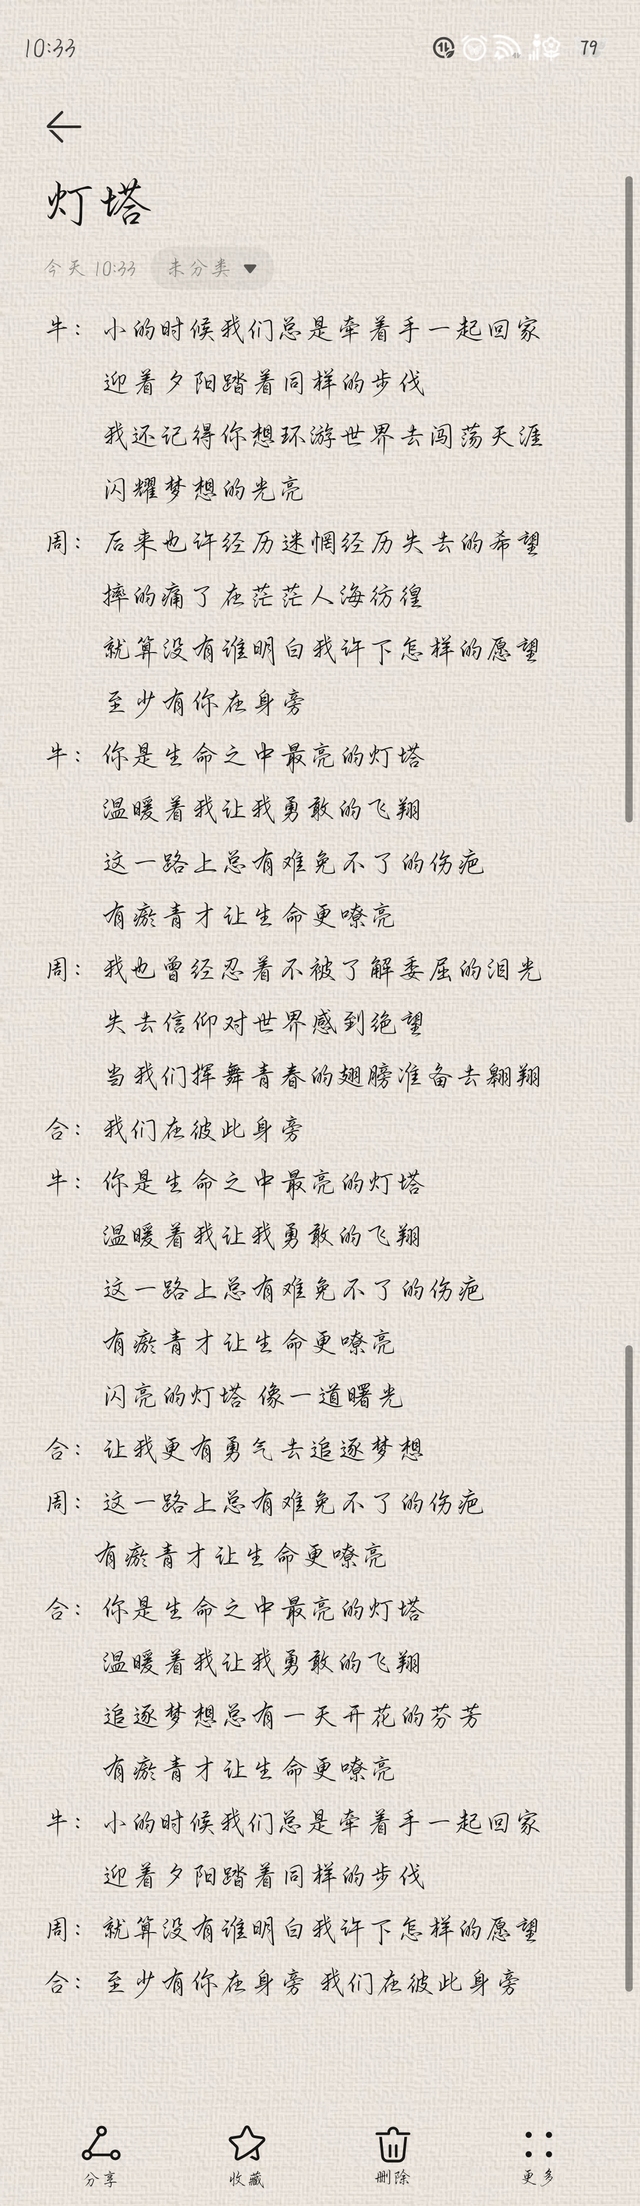 10:33
79
灯塔
今天 10:33 未分类
牛：小的时候我们总是牵着手一起回家
迎着夕阳踏着同样的步伐
我还记得你想环游世界去闯荡天涯
闪耀梦想的光亮
周：后来也许经历迷惘经历失去的希望
摔的痛了在茫茫人海彷徨
就算没有谁明白我许下怎样的愿望
至少有你在身旁
牛：你是生命之中最亮的灯塔
温暖着我让我勇敢的飞翔
这一路上总有难免不了的伤疤
有瘀青才让生命更嘹亮
周：我也曾经忍着不被了解委屈的泪光
失去信仰对世界感到绝望
当我们挥舞青春的翅膀准备去翱翔
合：我们在彼此身旁
牛：你是生命之中最亮的灯塔
温暖着我让我勇敢的飞翔
这一路上总有难免不了的伤疤
有瘀青才让生命更嘹亮
闪亮的灯塔 像一道曙光
合：让我更有勇气去追逐梦想
周：这一路上总有难免不了的伤疤
有瘀青才让生命更嘹亮
合：你是生命之中最亮的灯塔
温暖着我让我勇敢的飞翔
追逐梦想总有一天开花的芬芳
有瘀青才让生命更嘹亮
牛：小的时候我们总是牵着手一起回家
迎着夕阳踏着同样的步伐
周：就算没有谁明白我许下怎样的愿望
合：至少有你在身旁 我们在彼此身旁
分享 收藏 删除 更多